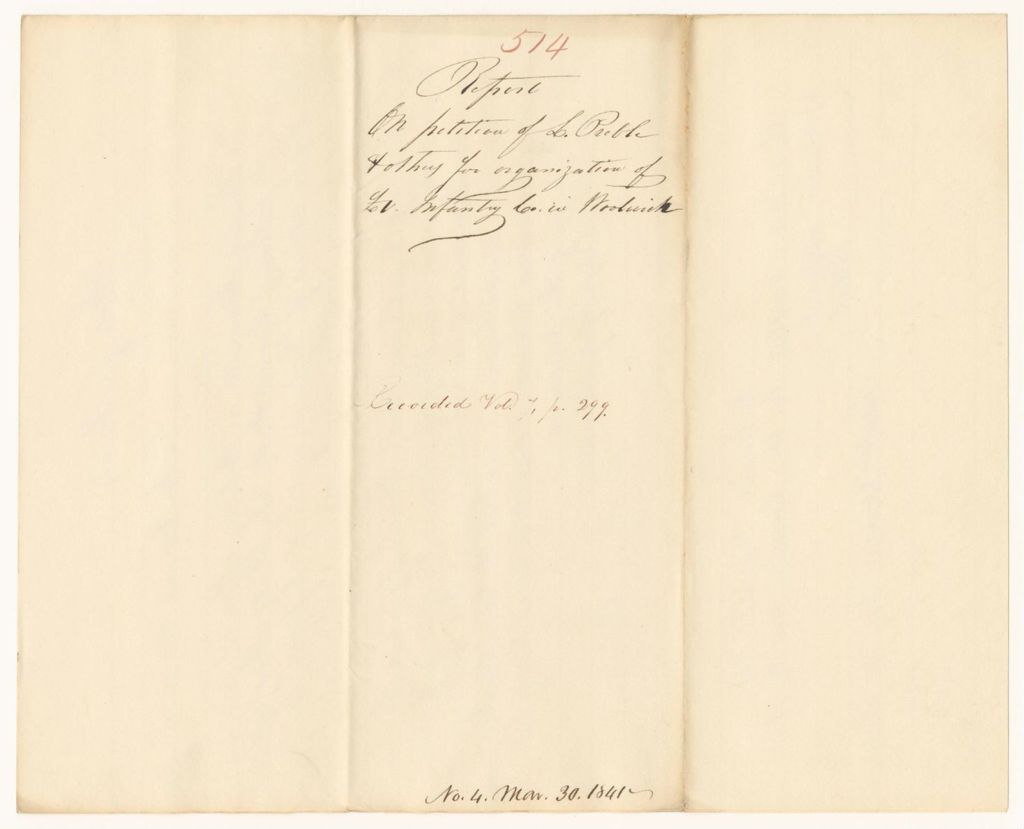 514
Report
On petition of L. Preble
& others for organization of
Lt. Infantry Co. in Woolwich
Recorded Vol. 7, p. 299.
No. 4. Mar. 30. 1841